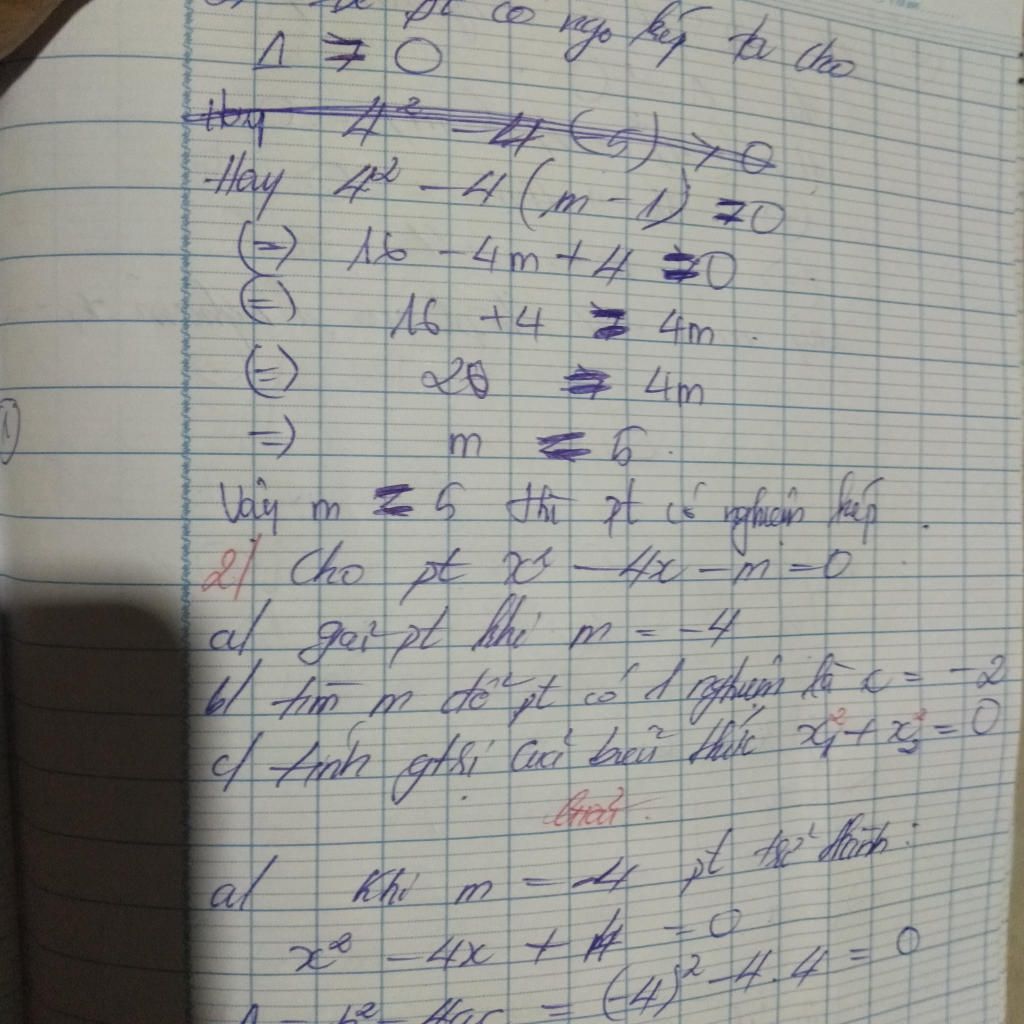 pt có ngo kép ta cho
Δ ⩾ 0
Hay 4² - 4 (5) > 0
Hay 4² - 4 (m - 1) = 0
(=) 16 - 4m + 4 = 0
(=) 16 + 4 = 4m
(=) 20 = 4m
=) m = 5
Vậy m = 5 thì pt có nghiệm kép.
2/ Cho pt x² - 4x - m = 0
a/ giải pt khi m = -4
b/ tìm m để pt có 1 nghiệm là x = -2
c/ tính gtrị của biểu thức x₁² + x₂² = 0
Giải
a/ Khi m = -4 pt trở thành:
x² - 4x + 4 = 0
Δ = b² - 4ac = (-4)² - 4.4 = 0